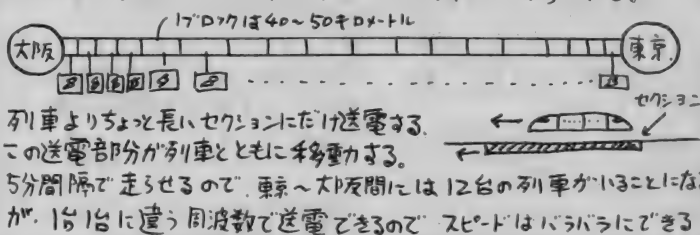 1ブロックは40〜50キロメートル
大阪
東京
セクション
列車よりちょっと長いセクションにだけ送電する.
この送電部分が列車とともに移動する。
5分間隔で走らせるので、東京〜大阪間には12台の列車がいることにな
が、1台1台に違う周波数で送電できるので スピードはバラバラにできる